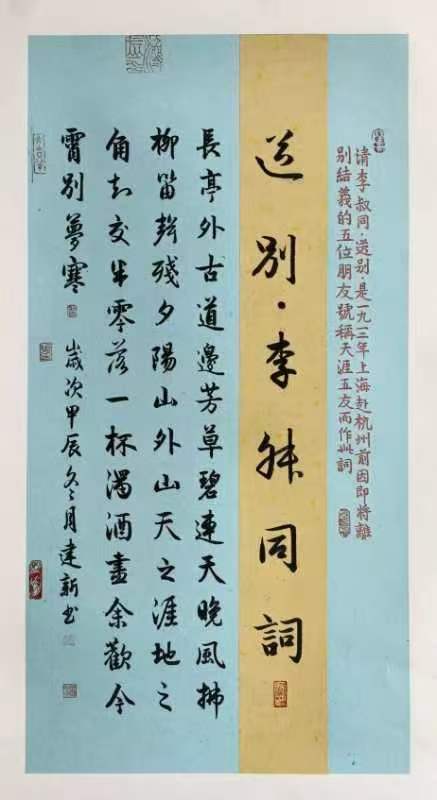 请李叔同·送别·是一九三年上海赴杭州前因即将離
别结義的五位朋友號稱天涯五友而作此詞
送别·李叔同詞
長亭外古道邊芳草碧連天晚風拂
柳笛聲殘夕陽山外山天之涯地之
角知交半零落一杯濁酒盡余歡今
霄别夢寒 歲次甲辰冬月建新书